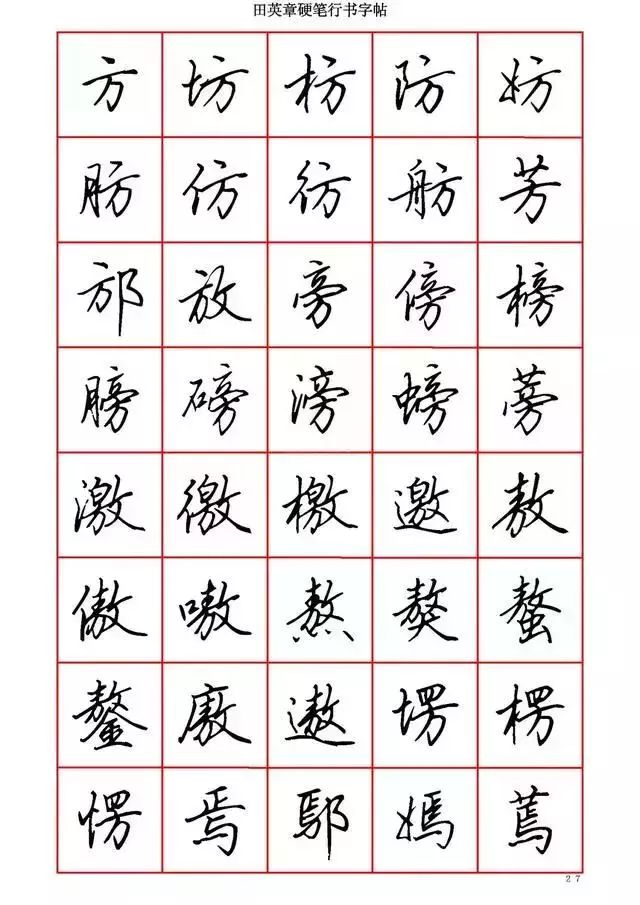 田英章硬笔行书字帖
方坊枋防妨
肪仿彷舫芳
邡放旁傍榜
膀磅滂螃蒡
激徼檄邀敖
傲嗷熬獒螯
鏊廒遨塄楞
愣焉鄢嫣蔫
27